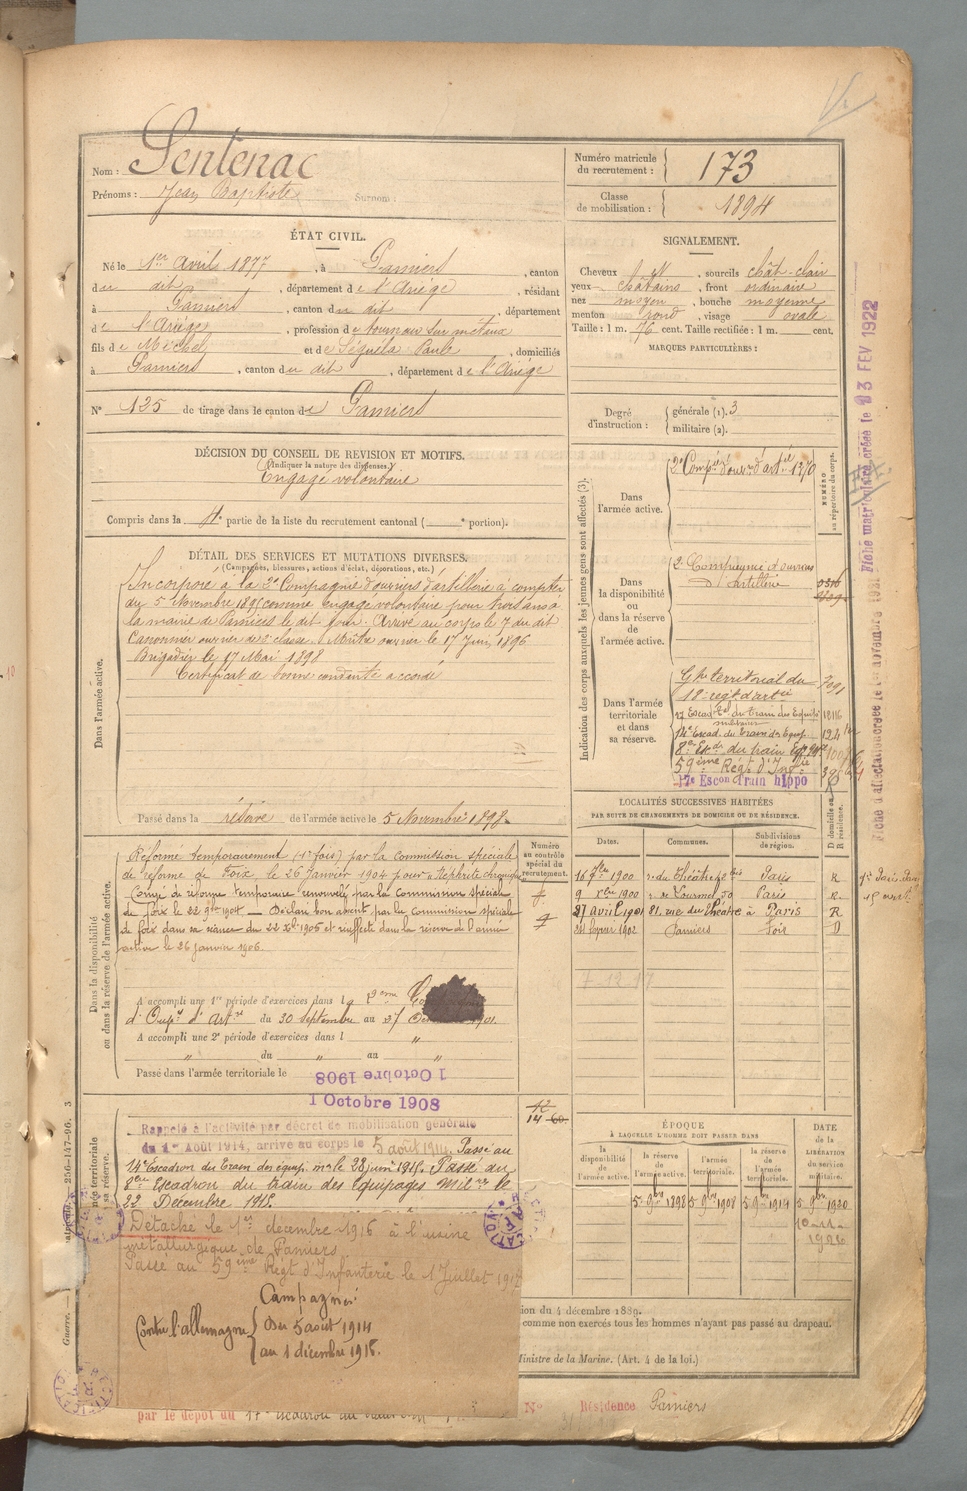 Nom : Sentenac
Prénoms : Jean Baptiste Surnom :
Numéro matricule du recrutement : 173
Classe de mobilisation : 1894
ÉTAT CIVIL.
Né le 1er Avril 1877, à Pamiers, canton
du dit, département de l'Ariège, résidant
à Pamiers, canton du dit, département
de l'Ariège, profession de tourneur sur métaux
fils de Michel et de Séguéla Paule, domiciliés
à Pamiers, canton du dit, département de l'Ariège
N° 125 de tirage dans le canton de Pamiers
SIGNALEMENT.
Cheveux et, sourcils chât-clair
yeux châtains, front ordinaire
nez moyen, bouche moyenne
menton rond, visage ovale
Taille : 1 m. 76 cent. Taille rectifiée : 1 m. cent.
MARQUES PARTICULIÈRES :
Degré d'instruction : générale (1). 3
militaire (2).
DÉCISION DU CONSEIL DE REVISION ET MOTIFS.
(Indiquer la nature des dispenses.)
Engagé volontaire
Compris dans la 4e partie de la liste du recrutement cantonal ( e portion).
DÉTAIL DES SERVICES ET MUTATIONS DIVERSES.
(Campagnes, blessures, actions d'éclat, décorations, etc.)
Dans l'armée active.
Incorporé à la 2e Compagnie d'ouvriers d'artillerie à compter
du 5 Novembre 1895 comme engagé volontaire pour trois ans à
la mairie de Pamiers le dit jour. Arrivé au corps le 7 du dit
Canonnier ouvrier de 2e classe. Maître ouvrier le 17 Juin 1896
Brigadier le 17 Mai 1898
Certificat de bonne conduite accordé
Passé dans la réserve de l'armée active le 5 Novembre 1898.
Indication des corps auxquels les jeunes gens sont affectés (3).
NUMÉRO au répertoire du corps.
Dans l'armée active.
2e Compie d'ouvr. d'artie 1370
Dans la disponibilité ou dans la réserve de l'armée active.
2e Compagnie d'ouvriers
d'Artillerie
Dans l'armée territoriale et dans sa réserve.
Gpe territorial du
18e régt d'artie
17 Escad. Tal du Train des Équip. 12116
militaires
14e Escad. du Train des Equip.
8e Escd. du train
59ème Régt d'Infie
17e Escon Train hippo
Dans la disponibilité ou dans la réserve de l'armée active.
Réformé temporairement (1re fois) par la commission spéciale
de réforme de Foix, le 26 Janvier 1904 pour "néphrite chronique"
Congé de réforme temporaire renouvelé par la commission spéciale
de Foix le 22 9bre 1904 — Déclaré bon absent par la commission spéciale
de Foix dans sa séance du 22 Xbre 1905 et réaffecté dans la réserve de l'armée
active le 26 Janvier 1906.
A accompli une 1re période d'exercices dans la 2ème
d'Ouvrs d'Artie du 30 septembre au 27 1901.
A accompli une 2e période d'exercices dans l "
" du " au "
Passé dans l'armée territoriale le 1 Octobre 1908
1 Octobre 1908
Numéro au contrôle spécial du recrutement.
LOCALITÉS SUCCESSIVES HABITÉES
PAR SUITE DE CHANGEMENTS DE DOMICILE OU DE RÉSIDENCE.
Dates. Communes. Subdivisions de région. D domicile ou R résidence.
r. du Théâtre Paris R
9 Xbre 1900 r. de Lourmel 50 Paris R
27 avril 1901 21, rue du Théâtre à Paris R
1902 Pamiers Foix D
Rappelé à l'activité par décret de mobilisation générale
du 1er Août 1914, arrivé au corps le 5 août 1914. Passé au
14e Escadron du Train des équip. mres le 28 juin 1915. Passé au
8ème Escadron du train des Equipages milres le
22 Décembre 1915.
Détaché le 1er décembre 1916 à l'usine
métallurgique de Pamiers
Passé au 59ème Régt d'Infanterie le 1 Juillet 1917
Campagnes
Contre l'allemagne
du 5 août 1914
au 1 décembre 1916.
ÉPOQUE
À LAQUELLE L'HOMME DOIT PASSER DANS
la disponibilité de l'armée active. la réserve de l'armée active. l'armée territoriale. la réserve de l'armée territoriale.
DATE de la LIBÉRATION du service militaire.
5 9bre 1898 5 9bre 1908 5 9bre 1914 5 9bre 1920
ion du 4 décembre 1889.
comme non exercés tous les hommes n'ayant pas passé au drapeau.
Ministre de la Marine. (Art. 4 de la loi.)
par le dépôt du 17e escadron du
N° Résidence Pamiers
Fiche matriculaire créée le 13 FEV 1922
Fiche d'affectation créée le 1er novembre 1921
Guerre. — 256-147-96. 3